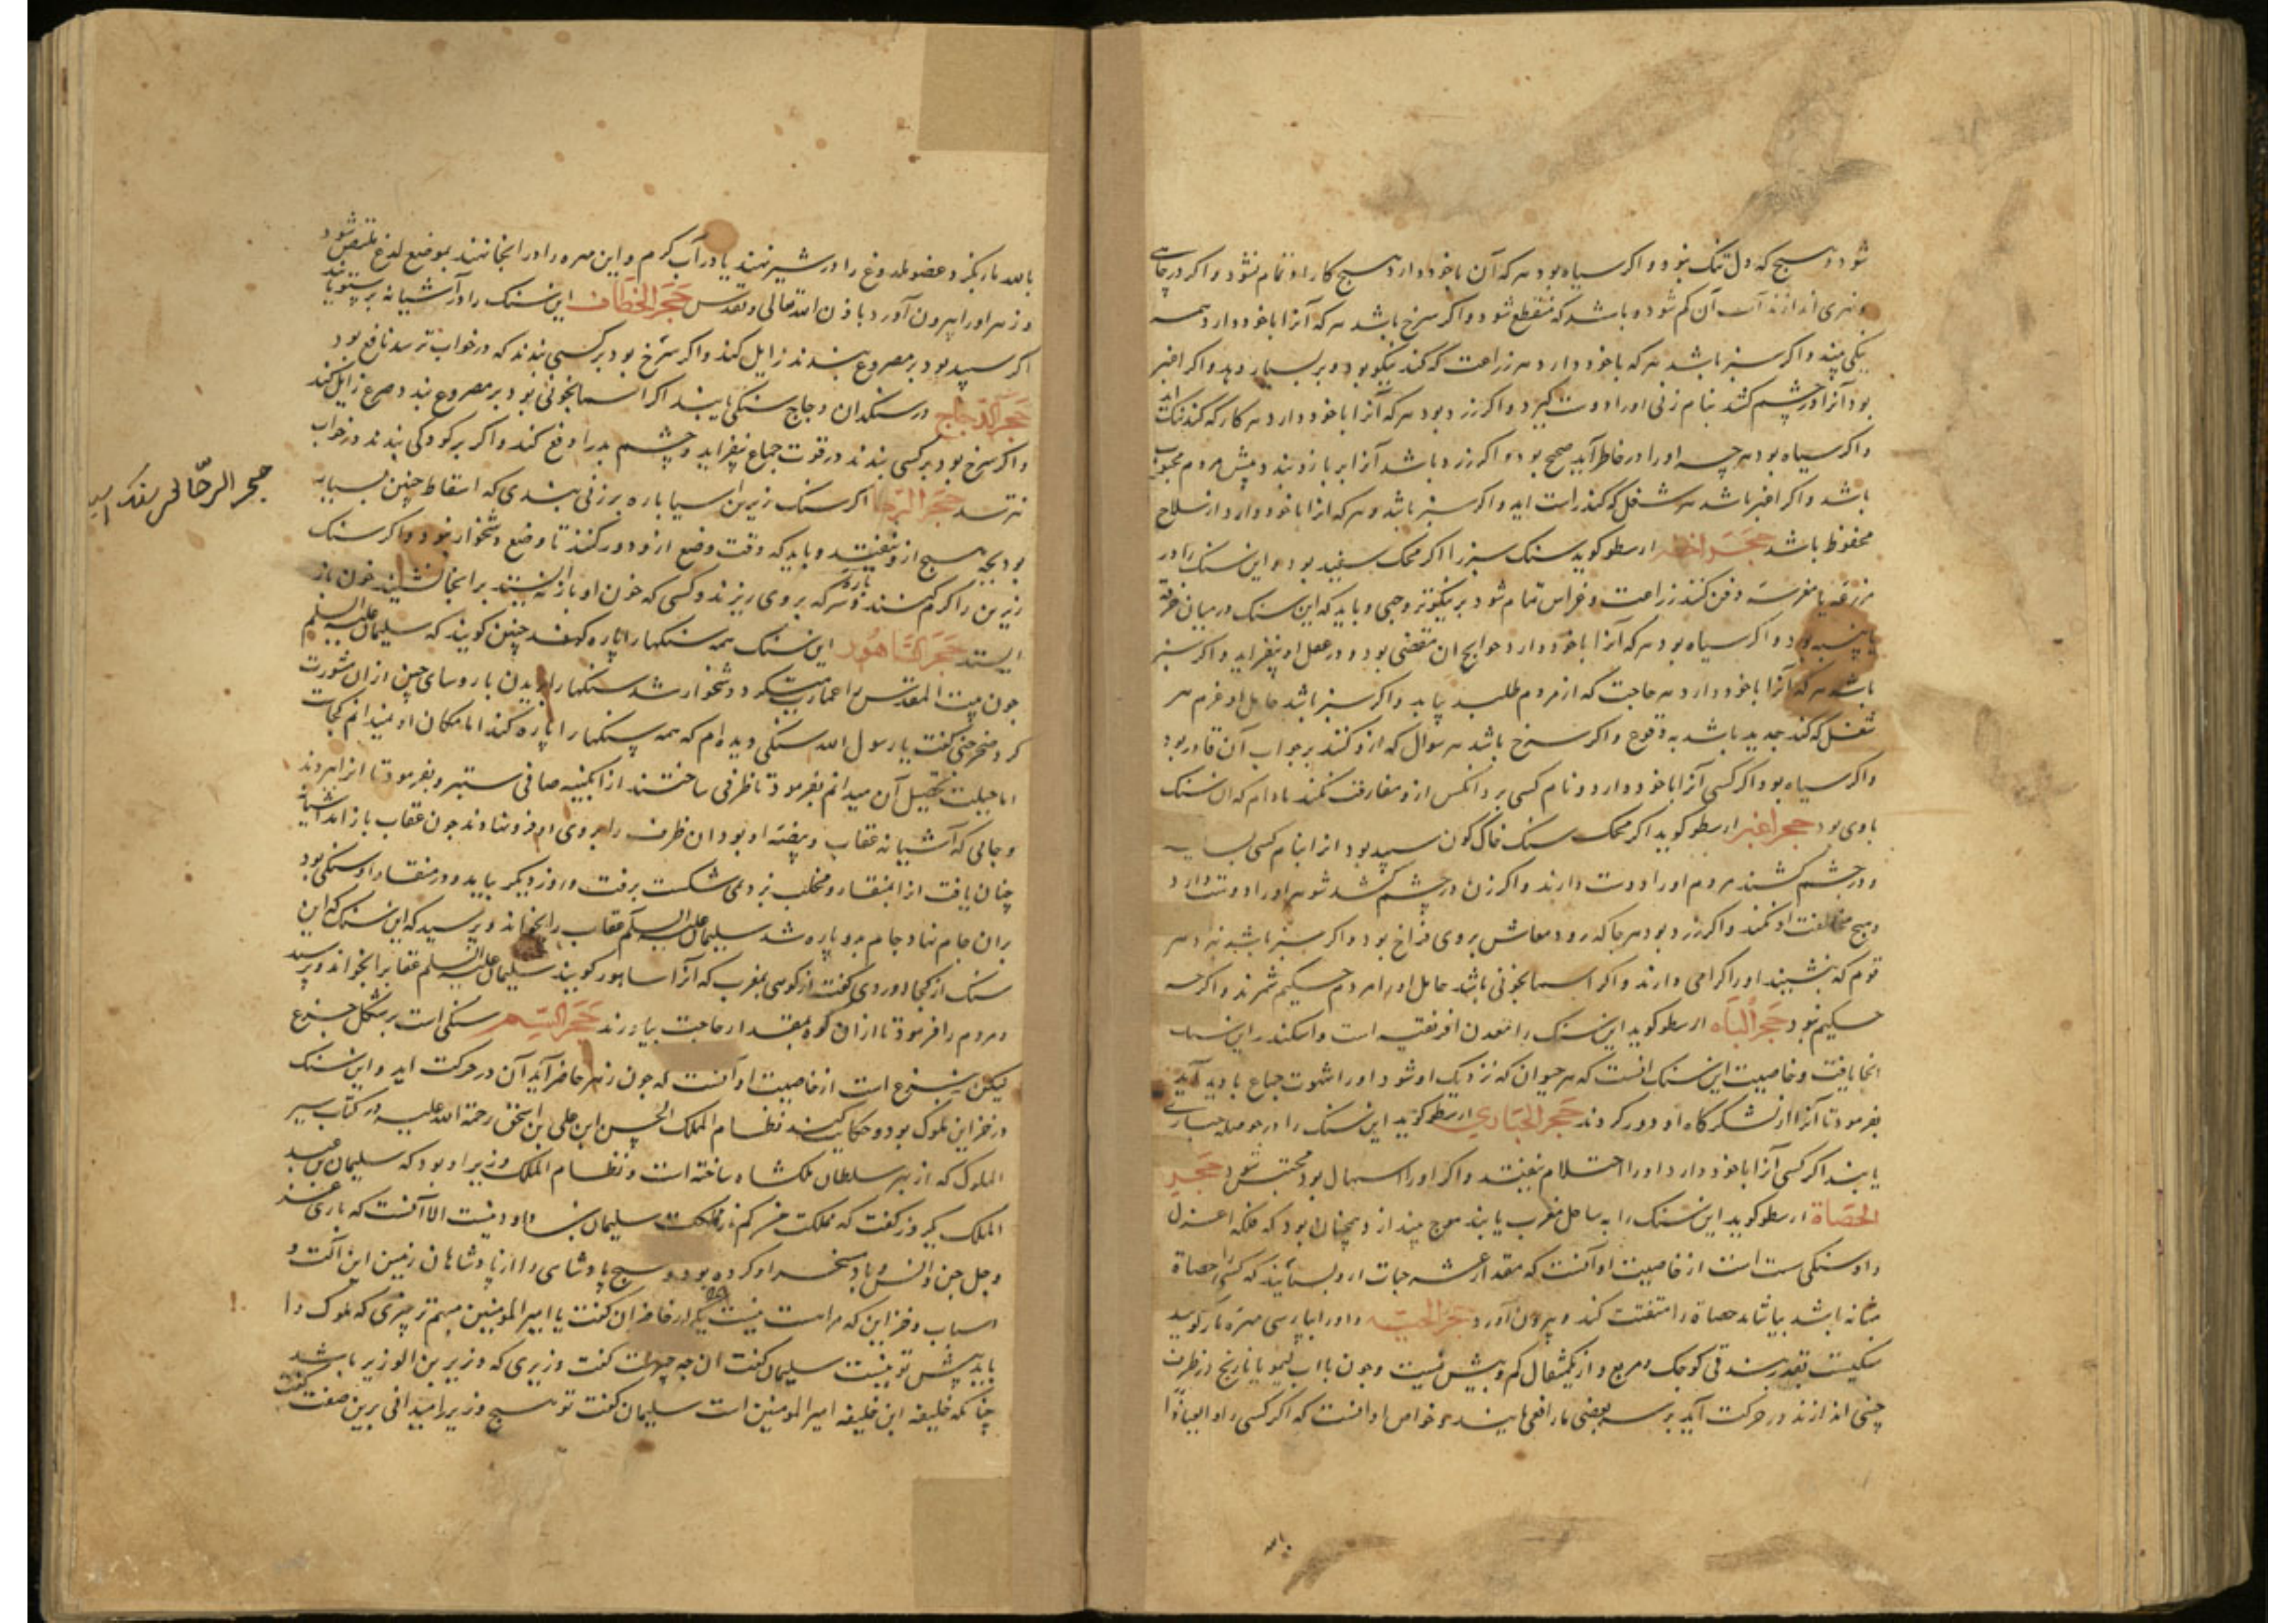 شود و هیچ که دل تنک نبود و اکر سیاه بود هر که آن باخود دارد هیچ کار او تمام نشود و اکر در چاهی
و نهری اندازند آب آن کم شود و باشد که منقطع شود و اکر سرخ باشد هر که آنرا باخود دارد همه
نیکی بیند و اکر سبز باشد هر که باخود دارد هر زراعت که کند نیکو بود و بر بسیار دهد و اکر اغبر
بود آنرا در چشم کشد بنام زنی اورا دوست کیرد و اکر زرد بود هر که آنرا باخود دارد هر کار که کند
و اکر سیاه بود هر چه اورا در خاطر آید صحیح بود و اکر زرد باشد آنرا بر بازو بندد پیش مردم محبوب
باشد و اکر اغبر باشد هر شغل که کند راست اید و اکر سبز باشد و هر که انرا باخود دارد از سلاح
محفوظ باشد حجر اخضر ارسطو کوید سنک سبز را اکر محک سفید بود و این سنک را در
مزرعه یا مغرسه دفن کنند زراعت و غراس تمام شود بر نیکوتر وجهی و باید که این سنک در میان خرقه
یا پنبه بود و اکر سیاه بود هر که آنرا باخود دارد حوایج ان مقضی بود و در عقل او بیفزاید و اکر سبز
باشد هر که آنرا باخود دارد هر حاجت که از مردم طلبد بیابد و اکر سبز باشد حامل او عزم هر
شغل که کند جدید باشد به وقوع و اکر سرخ باشد هر سوال که ازو کنند بر جواب آن قادر بود
و اکر سیاه بود اکر کسی آنرا باخود دارد و نام کسی برد انکس ازو مفارقت نکند مادام که ان سنک
باوی بود حجر اغبر ارسطو کوید اکر محک سنک خاک کون سپید بود انرا بنام کسی بساید
و در چشم کشند مردم اورا دوست دارند و اکر زن در چشم کشد شوهر اورا دوست دارد
و هیچ مخالفت او نکند و اکر زرد بود هر جا که رود معاش بروی فراخ بود و اکر سبز باشد
قوم که بنشیند اورا کرامی دارند و اکر اسمانجونی باشد حامل اورا مردم حکیم شمرند و اکر چه
حکیم نبود حجر الباه ارسطو کوید این سنک را معدن افریقیه است و اسکندر این سنک
انجا یافت و خاصیت این سنک انست که هر حیوان که نزدیک او شود اورا شهوت جماع بادید آید
بفرمود تا آنرا از لشکرگاه او دور کردند حجر الحباری ارسطو کوید این سنک را در حوصله حباری
یابند اکر کسی آنرا باخود دارد اورا احتلام نیفتد و اکر اورا اسهال بود محتبس شود حجر
الحصاة ارسطو کوید این سنک را به ساحل مغرب یابند موج بیندازد و همچنان بود که فلکه اغزل
و او سنکی سست است از خاصیت او آنست که مقدار عشر حبات ازو بسایند که کسی را حصاة
مثانه باشد بیاشامد حصاة را متفتت کند و بیرون آورد حجر الحیة و اورا بپارسی مهره مار کویند
سنکیست بقدر بندقی کوچک و مربع و از یکمثقال کم و بیش نیست و چون با اب لیمو یا نارنج در ظرف
چینی اندازند در حرکت آید بر سر بعضی مار افعی یابند و خواص او انست که اکر کسی را و العیاذ
بالله
بالله مار بکزد عضو ملدوغ را در شیر نهند یا در آب کرم و این مهره را در انجا نهند بموضع لدغ ملتصق شود
و زهر اورا بیرون آورد باذن الله تعالی و تقدس حجر الخطاف این سنک را در آشیانه پرستو یابند
اکر سپید بود بر مصروع بندند زایل کند و اکر سرخ بود بر کسی بندند که در خواب ترسد نافع بود
حجر الدجاج در سنکدان دجاج سنکی یابند اکر اسمانجونی بود بر مصروع بندد صرع زایل کند
و اکر سرخ بود بر کسی بندند در قوت جماع بیفزاید و چشم بد را دفع کند و اکر بر کودکی بندند در خواب
نترسد حجر الرحا اکر سنک زیرین اسیا پاره بر زنی بندی که اسقاط جنین بسیار
بود بچه هیچ ازو نیفتد و باید که وقت وضع ازو دور کنند تا وضع دشخوار نبود و اکر سنک
زیرین را کرم کنند و سرکه بروی ریزند و کسی که خون او باز نه ایستد بر انجا نشیند خون باز
ایستد حجر الساهور این سنک همه سنکها را پاره کند چنین کویند که سلیمان علیه السلم
چون بیت المقدس را عمارت میکرد دشخوار شد سنکها را بریدن با روسای جن ازان مشورت
کرد صخر جنی کفت یا رسول الله سنکی دیده ام که همه سنکها را پاره کند اما مکان او نمیدانم کجاست
اما حیلت تحصیل آن میدانم بفرمود تا ظرفی ساختند از ابکینه صافی ستبر و بفرمود تا انرا بردند
و جائی که آشیانه عقاب و بیضه او بود ان ظرف را بروی او فرو نهادند چون عقاب باز امد آشیانه
چنان یافت انرا بمنقار و مخلب بزد نمی شکست برفت و روز دیکر بیامد و در منقار او سنکی بود
بران جام نهاد جام دو پاره شد سلیمان علیه السلم عقاب را بخواند و پرسید که این سنک
سنک از کجا اوردی کفت از کوهی بمغرب که آنرا ساهور کویند سلیمان علیه السلم
مردم را فرمود تا ازان کوه بمقدار حاجت بیاورند حجر السم سنکی است بر شکل جزع
لیکن نه جزع است از خاصیت او آنست که چون زهر حاضر آید آن در حرکت اید و این سنک
در خزاین ملوک بود و حکایت کند نظام الملک الحسن ابن علی بن اسحق رحمة الله علیه در کتاب سیر
الملوک که از بهر سلطان ملکشاه ساخته است و نظام الملک وزیر او بود که سلیمان بن عبد
الملک یک روز کفت که مملکت من کم از مملکت سلیمان بن داود نیست الا آنست که باری عز
و جل جن و انس و باد مسخر او کرده بود و هیچ پادشاهی را از پادشاهان زمین این آلت و
اسباب و خزاین که مراست نیست یکی از حاضران کفت یا امیر المومنین مهم تر چیزی که ملوک را
باید پیش تو نیست سلیمان کفت ان چه چیز است کفت وزیری که وزیر بن الوزیر باشد
چنانکه خلیفه ابن خلیفه امیر المومنین است سلیمان کفت تو هیچ وزیر را میدانی برین صفت کفت
حجر الرحا